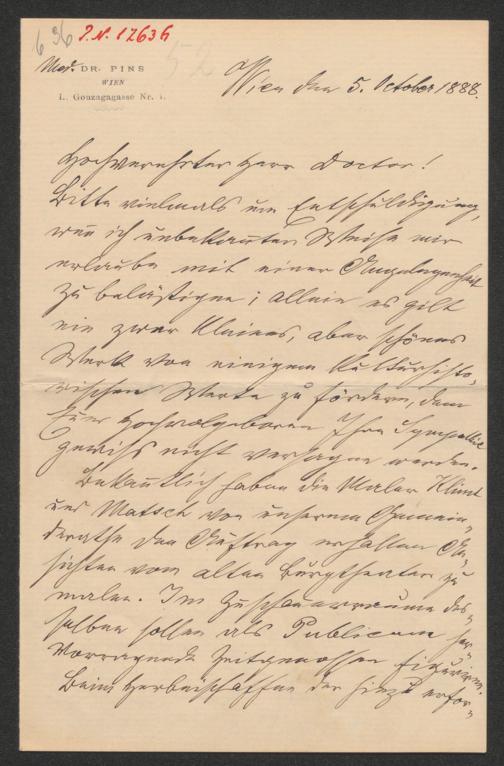 636 I.N. 17636
52
Med. DR. PINS
WIEN
I. Gonzagagasse Nr.
Wien den 5. October 1888.
Hochverehrter Herr Doctor!
Bitte vielmals um Entschuldigung,
wenn ich unbekannter Weise mir
erlaube mit einer Angelegenheit
zu belästigen; allein es gilt
ein zwar kleines, aber schönes
Werk von einigem kulturhisto-
rischen Werte zu fördern, dem
Euer Hochwolgeboren Ihre Sympathie
gewiss nicht versagen werden.
Bekantlich haben die Maler Klimt
und Matsch von unserem Gemein-
derathe den Auftrag erhalten An-
sichten vom alten Burgtheater zu
malen. Im Zuschauerraume des-
selben sollen als Publicum her-
vorragende Zeitgenossen figuriren.
Beim Herbeischaffen der hiezu erfor-